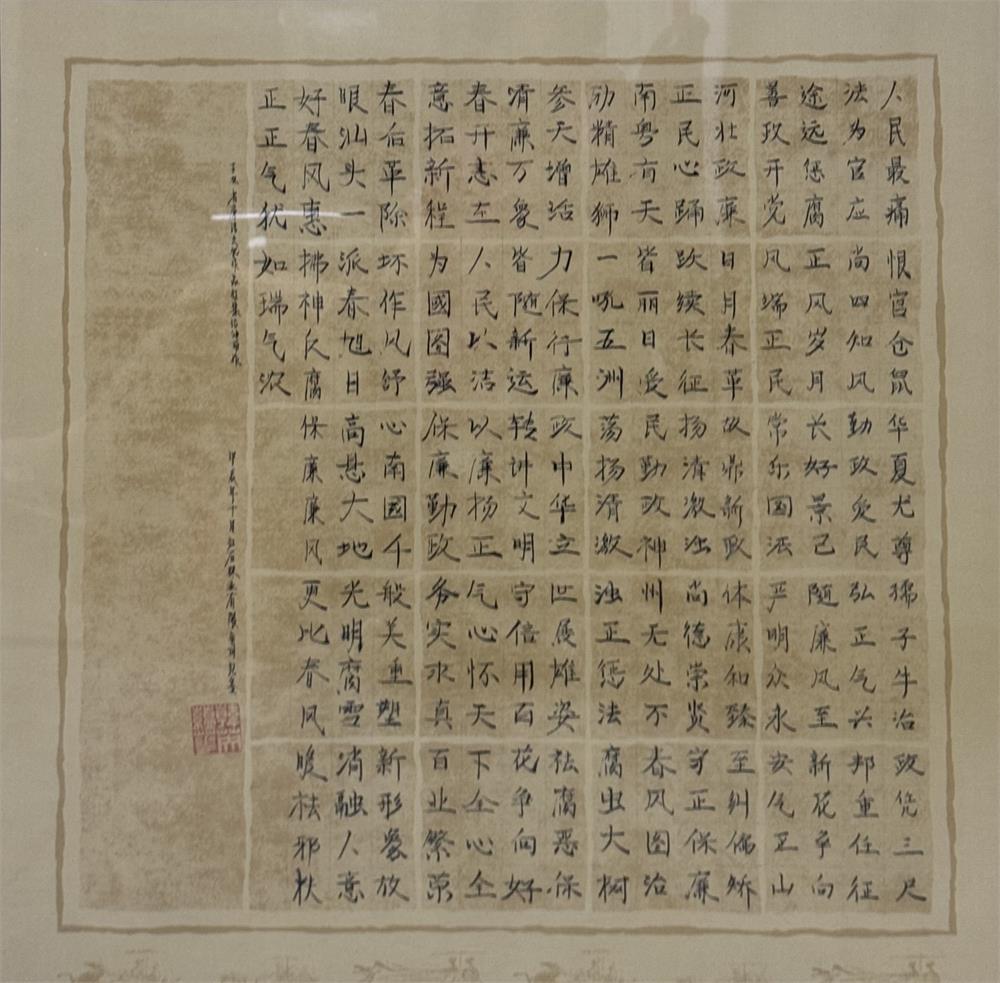 人民最痛恨官仓鼠华夏尤尊孺子牛治政凭三尺
法为官应尚四知风勤政爱民弘正气兴邦重任征
途远惩腐正风岁月长好景已随廉风至新花争向
善政开党风端正民常乐国法严明众永安气正山
河壮政廉日月春革故鼎新政体康和臻至纠偏矫
正民心踊跃续长征扬清激浊尚德崇贤守正保廉
南粤有天皆丽日爱民勤政神州无处不春风图治
励精雄狮一吼五洲荡扬清激浊正惩法腐虫大树
参天增活力保行廉政中华立世展雄姿祛腐恶保
清廉万象皆随新运转讲文明守信用百花争向好
春开志在人民以洁以廉扬正气心怀天下全心全
意拓新程为國图强保廉勤政务实求真百业繁荣
春后革除坏作风舒心南国千般美重塑新形象放
眼汕头一派春旭日高悬大地光明腐雪消融人意
好春风惠拂神反腐保廉廉风更比春风暖祛邪扶
正正气犹如瑞气浓
甲辰年十月